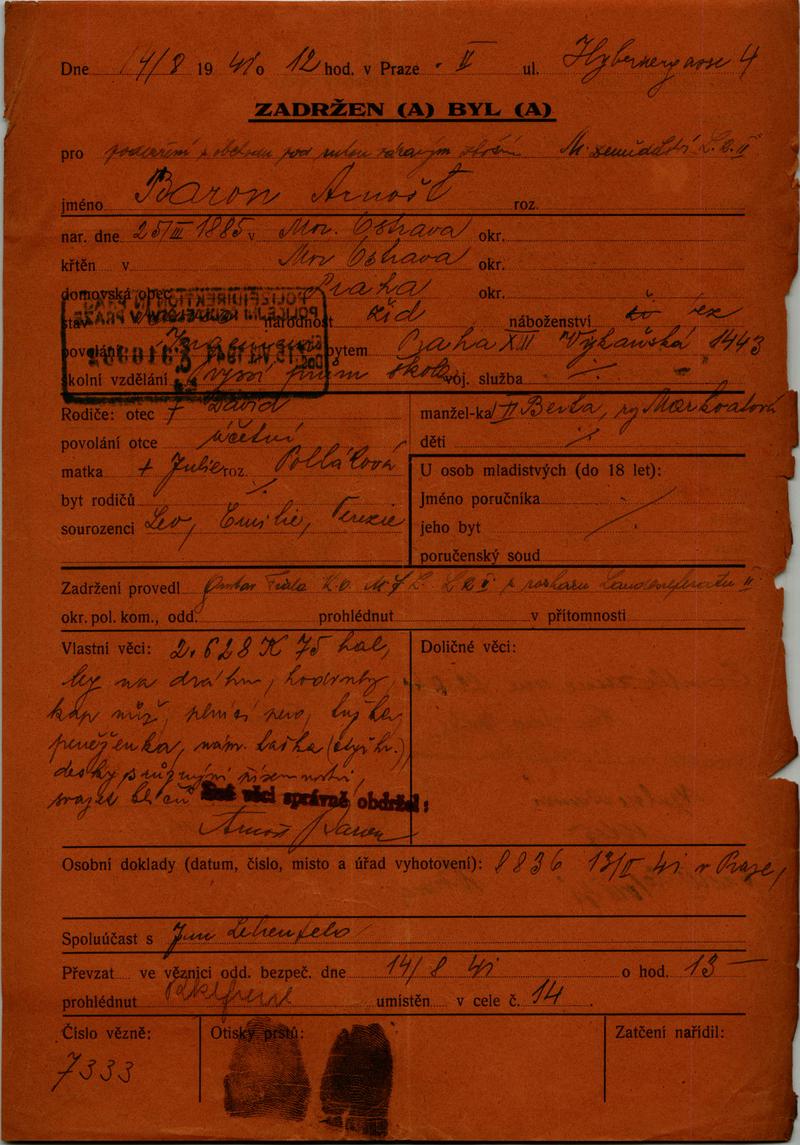 Dne 14/8 1941 o 12 hod. v Praze II ul. Hybernergasse 4
ZADRŽEN (A) BYL (A)
pro podezření z obchodu pod rukou M. zemědělství
jméno Baron Arnošt roz.
nar. dne 25/III 1885 v Mor. Ostrava okr.
křtěn v Mor Ostrava okr.
domovská obec Praha okr.
stav národnost žid náboženství
povolání bytem Praha XII 1443
školní vzdělání vyšší prům škola voj. služba
Rodiče: otec † David
povolání otce účetní
matka + Julie roz. Polláková
byt rodičů
sourozenci Leo, Emilie, Terezie
manžel-ka II Berta, Markvatová
děti
U osob mladistvých (do 18 let):
Jméno poručníka
jeho byt
poručenský soud
Zadržení provedl
okr. pol. kom., odd. prohlédnut v přítomnosti
Vlastní věci: 2.628 K 75 hal,
leg na dráhu, hodinky,
kap nůž, plnicí pero, tužka,
peněženka, nám. taška
desky
svazek klíčů Své věci správně obdržel:
Arnošt Baron
Doličné věci:
Osobní doklady (datum, číslo, místo a úřad vyhotovení): 8836 13/II 41 v Praze,
Spoluúčast s
Převzat ve věznici odd. bezpeč. dne 14/8 41 o hod. 13
prohlédnut umístěn v cele č. 14.
Číslo vězně:
7333
Otisky prstů:
Zatčení nařídil: